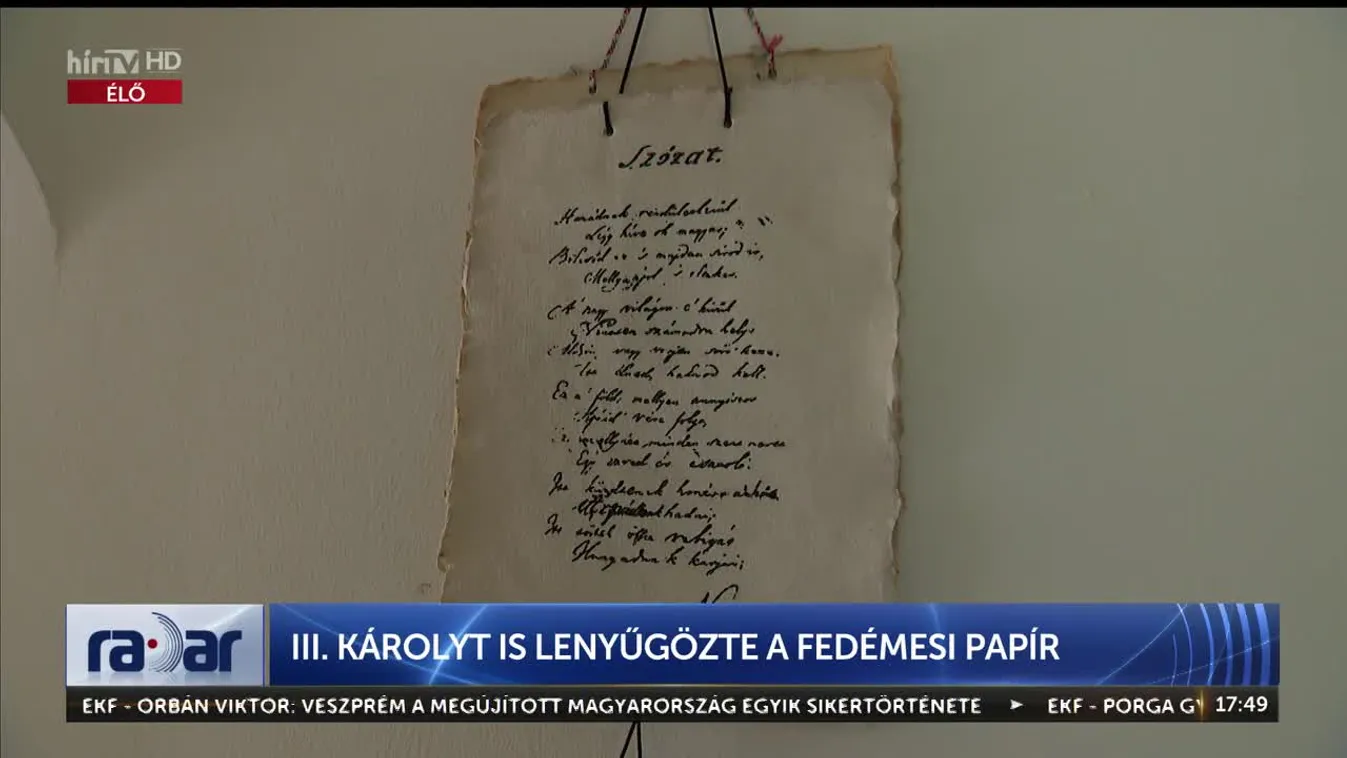 hírTV HD
ÉLŐ
Szózat.
Hazádnak rendületlenűl
Légy híve oh magyar;
Bölcsőd ez 's majdan sírod is,
Melly ápol 's eltakar.
A' nagy világon e' kívűl
Nincsen számodra hely;
Áldjon vagy verjen sors keze,
Itt élned, halnod kell.
Ez a' föld, mellyen annyiszor
Apáid vére folyt;
Ez, mellyhez minden szent nevet
Egy ezred év csatolt.
Itt küzdtenek honért a' hős
hadai;
Itt törtek össze rabigát
Hunyadnak karjai;
radar
III. KÁROLYT IS LENYŰGÖZTE A FEDÉMESI PAPÍR
EKF - ORBÁN VIKTOR: VESZPRÉM A MEGÚJÍTOTT MAGYARORSZÁG EGYIK SIKERTÖRTÉNETE ► EKF - PORGA GY
17:49